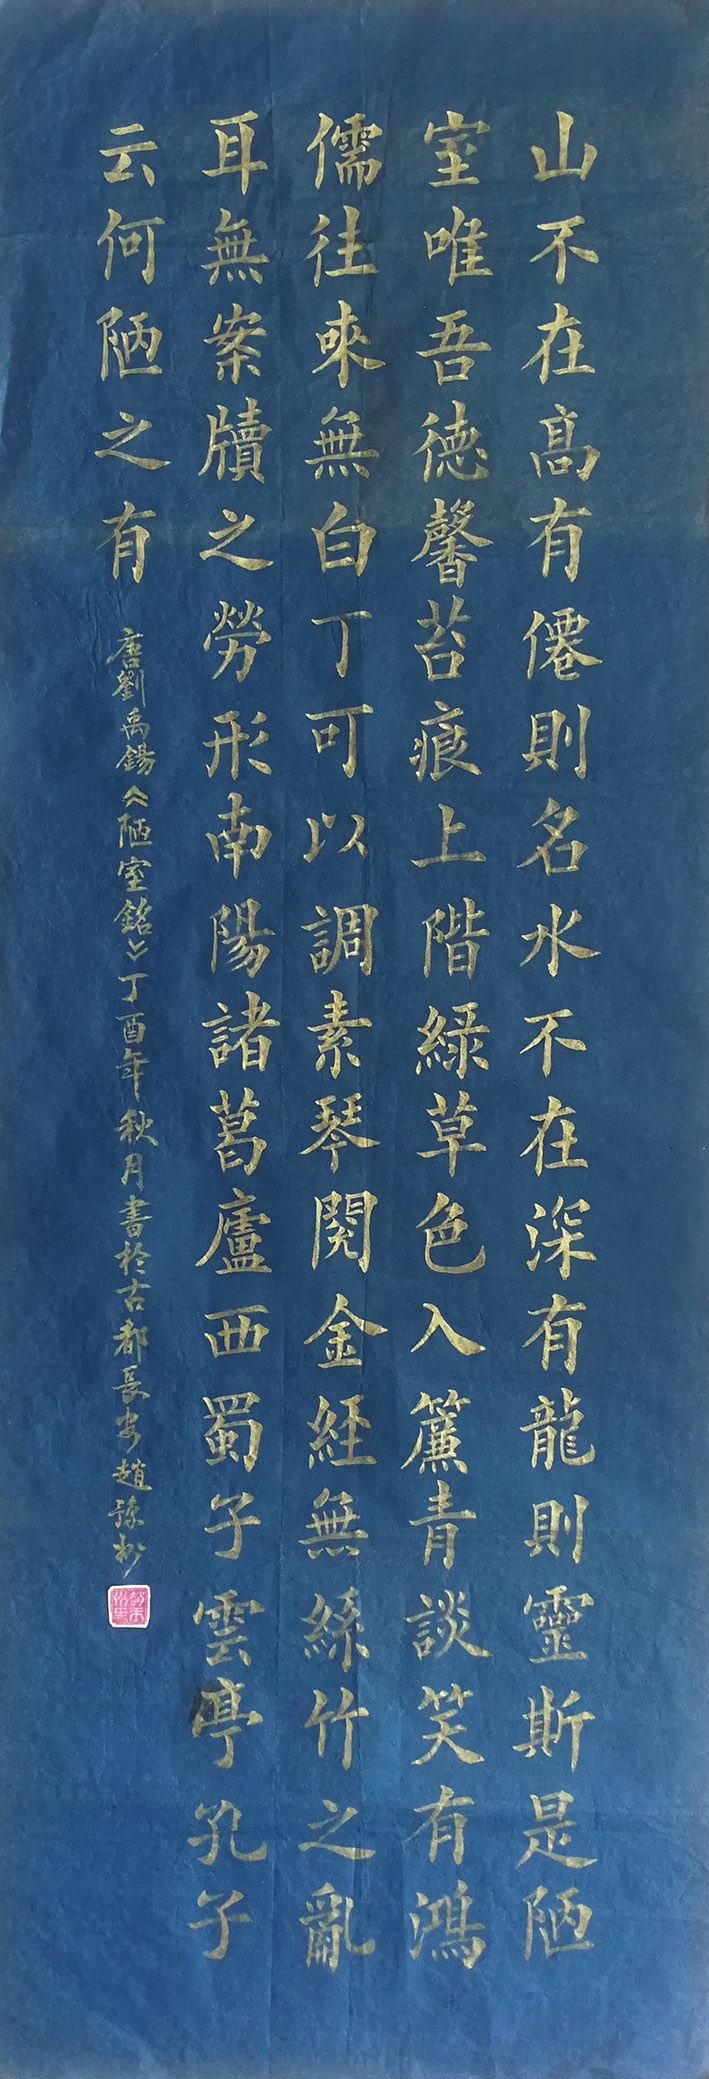 山不在髙有僊則名水不在深有龍則靈斯是陋
室唯吾德馨苔痕上階綠草色入簾青談笑有鴻
儒往來無白丁可以調素琴閱金經無絲竹之亂
耳無案牘之勞形南陽諸葛廬西蜀子雲亭孔子
云何陋之有
唐劉禹錫《陋室銘》丁酉年秋月書於古都長安趙